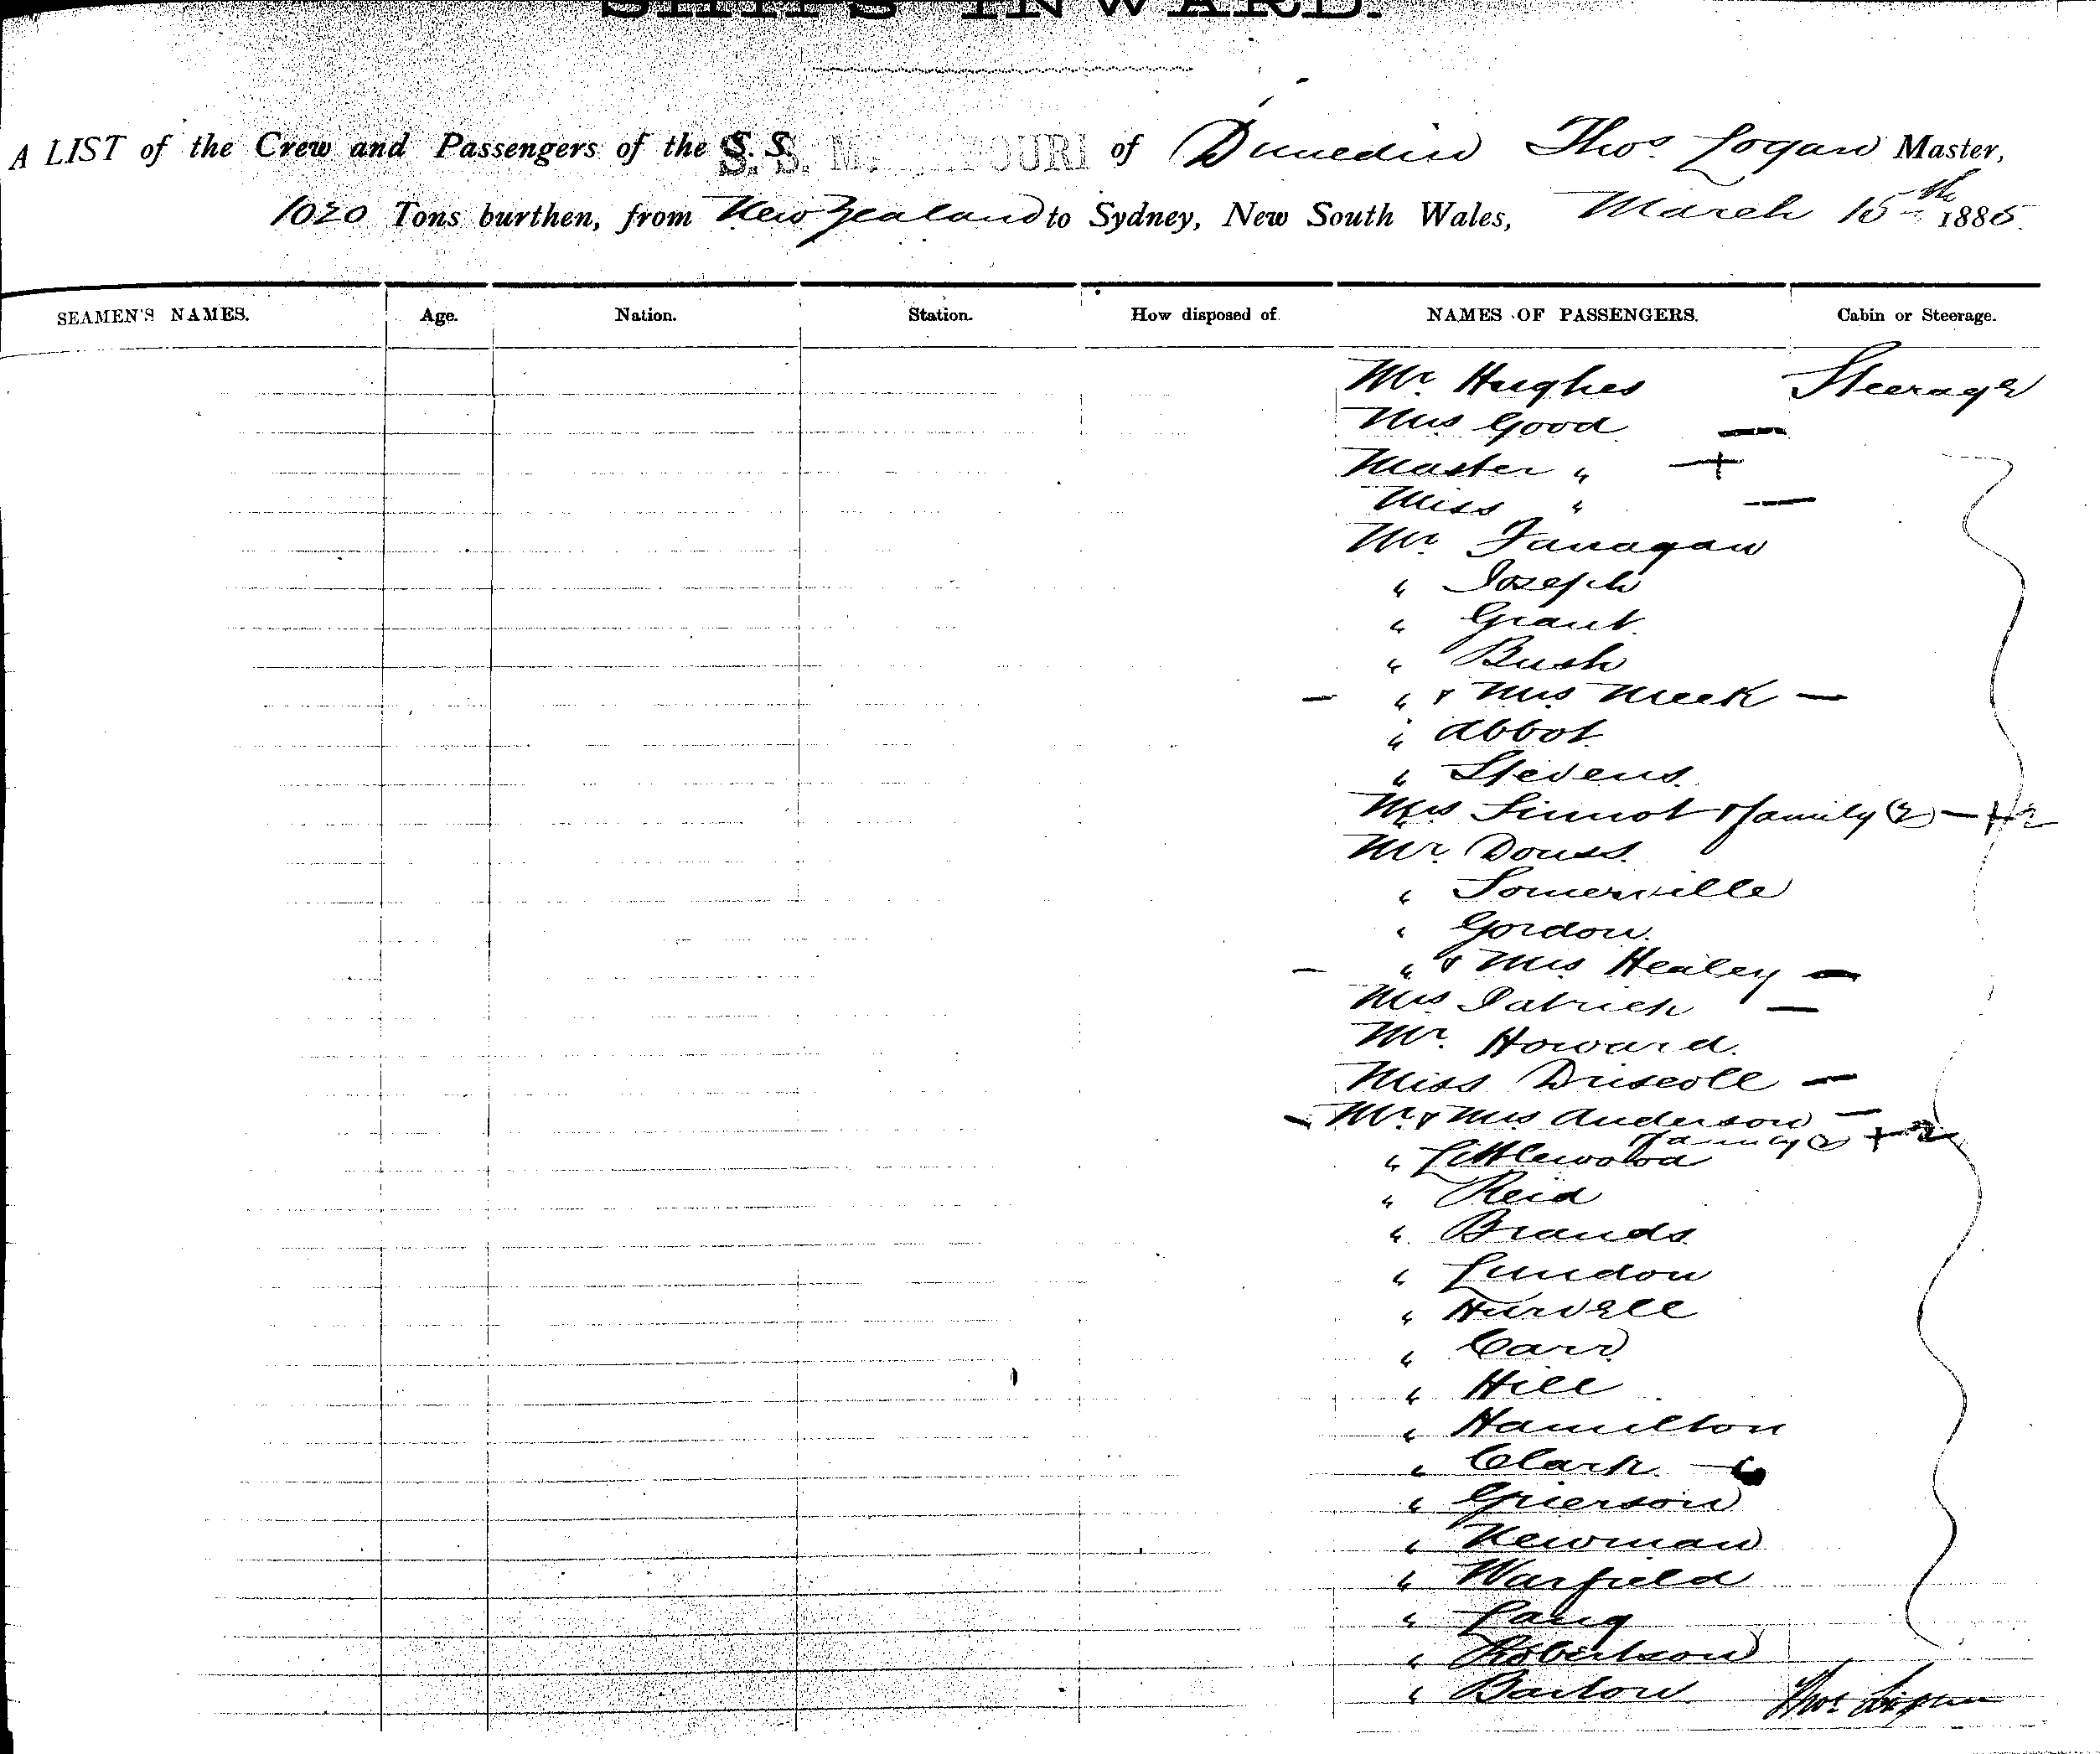 SHIPS INWARD.
A LIST of the Crew and Passengers of the S. S. of Dunedin Thos Logan Master,
1020 Tons burthen, from New Zealand to Sydney, New South Wales, March 15th 1885.
SEAMEN'S NAMES. Age. Nation. Station. How disposed of. NAMES OF PASSENGERS. Cabin or Steerage.
Mr Hughes Steerage
Mrs Good —
Master " — +
Miss " —
Mr Fanagan
" Joseph
" Grant
" Bush
— " & Mrs Meek —
" Abbot
" Stevens
Mrs Sinnot & family (2) — + 2
Mr Douss
" Somerville
" Gordon
— " & Mrs Healey —
Mrs Patrick —
Mr. Howard.
Miss Driscoll —
— Mr. & Mrs Anderson —
family (2) + 2
" Littlewood
" Reid
" Brands
" Lundon
" Hurvell
" Carr
" Hill
" Hamilton
" Clark
" Grierson
" Newman
" Warfield
" Lang
" Robertson
" Barlow Thos Logan